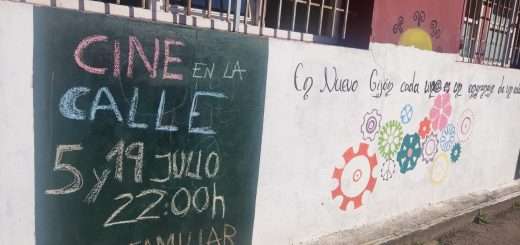 CINE EN LA
CALLE
5 y 19 JULIO
22:00h
FAMILIAR
En Nuevo Gijón cada un@ es un engranaje de un